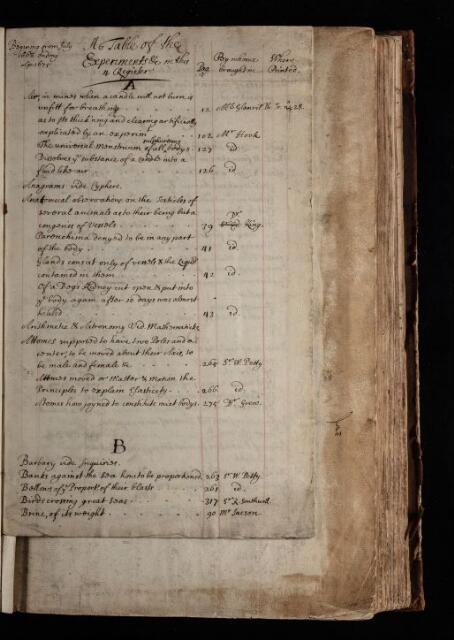 A Table of the
Experiments &c in this
4 Register
By whome
brought in
Where
Printed
A
Air, in mines when a candle will not burn is
unfitt for breathing 12
as to its thickning and clearing artificially
explicated by an experimt 102 Mr Hook
The universal Menstruum of all sulphureous bodys 123 id
Dissolves ye substance of a candle into a
fluid like air 126 id
Anagrams vide Cyphers
Anatomical observations on the Testicles of
severall animals as to their being but a
congeries of Vessels 39 Dr King
Parenchima denyed to be in any part
of the body 41 id
Glands consist only of vessels & the Liquor
contained in them 42 id
Of a Dogs Kidney cut open & put into
ye body again after 10 days was almost
healed 43 id
Arithmetic & Astronomy Vid. Mathematicks
Attomes supposed to have two Poles and a
center, to be moved about their Axis, to
be male and female &c 264 Sr W Petty
Attomes moved or Matter & Motion the
Principles to explain Elasticity 266 id
Atomes how joyned to constitute mixt bodys 275 Dr Grew
B
Barbary vide Inquiries
Banks against the Sea how to be proportioned 263 Sr W Petty
Bellows of ye Proport: of their blasts 261 id
Birds crossing great Seas 317 Sr R Southwell
Brine, of its weight 90 Mr